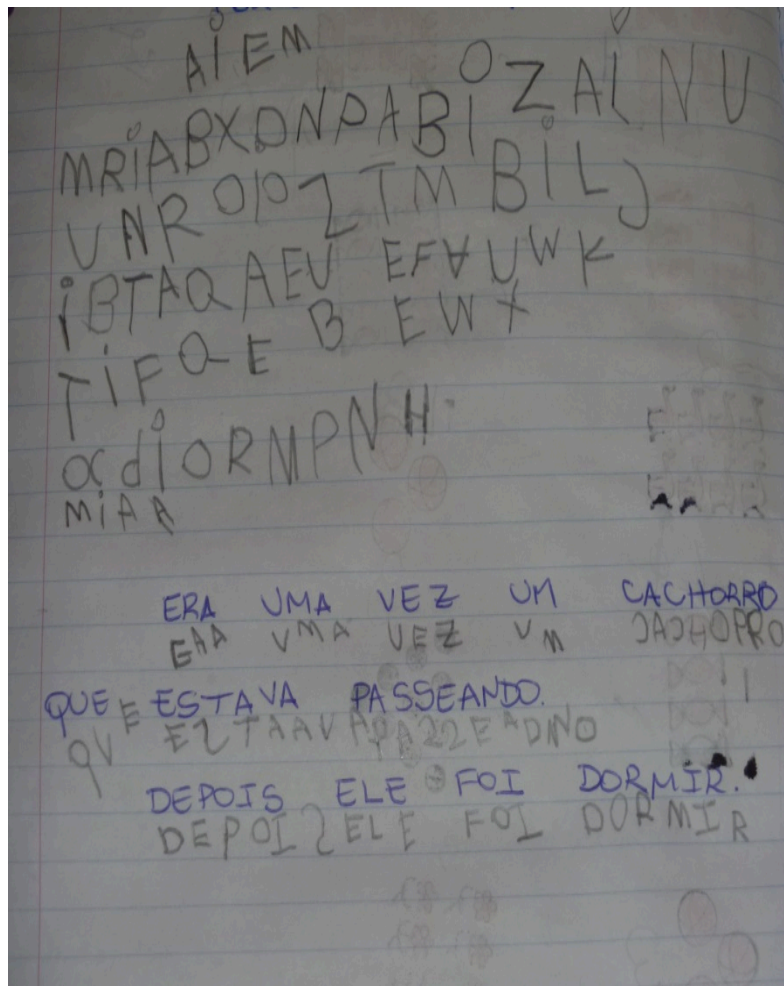 AiEM
MRiABXONPABiZALNU
UNROIOZTM BiLJ
iBTAQAEU EFAUWK
TiFQE B EWX
acdiORMPNH
MiAA
ERA UMA VEZ UM CACHORRO
EAA UMA VEZ UM CACHOPRO
QUE ESTAVA PASSEANDO.
QUE EZTAAVA PAZZEADNO
DEPOIS ELE FOI DORMIR.
DEPOIS ELE FOI DORMIR